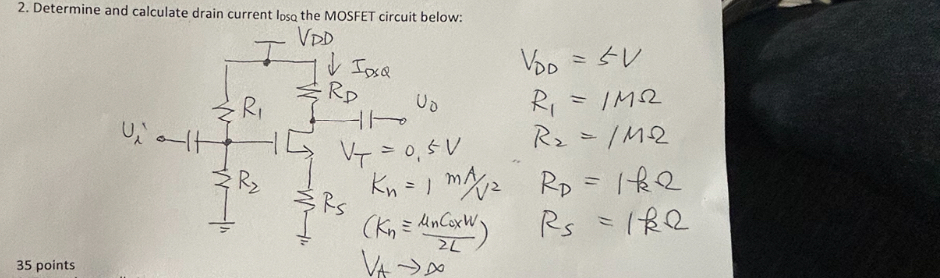 2. Determine and calculate drain current I_DSQ the MOSFET circuit below:
VDD
↓ IDSQ
RD
R1
Uo
Ui
VT = 0.5V
R2
Kn = 1 mA/V²
RS
(Kn ≡ μnCoxW/2L)
VA → ∞
VDD = 5V
R1 = 1MΩ
R2 = 1MΩ
RD = 1kΩ
RS = 1kΩ
35 points